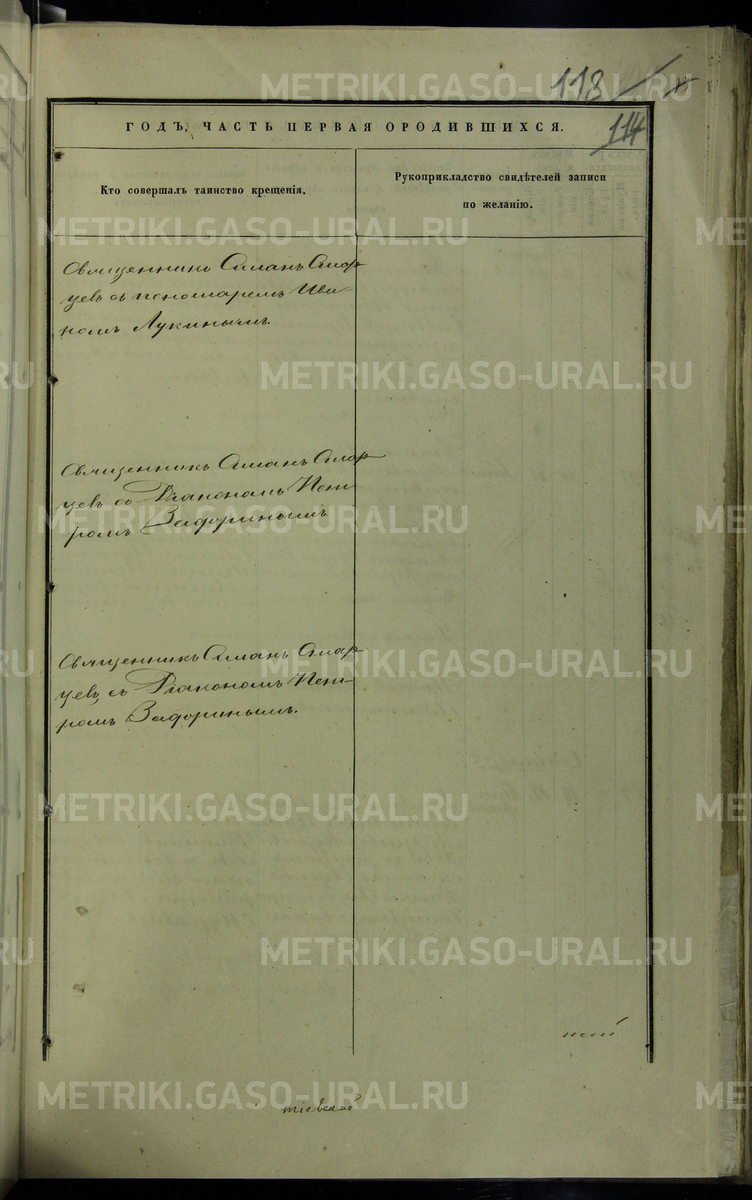 118
114
ГОДЪ, ЧАСТЬ ПЕРВАЯ О РОДИВШИХСЯ.
Кто совершалъ таинство крещенія.
Рукоприкладство свидѣтелей записи
по желанію.
Священникъ Симанъ Стар
цевъ съ пономаремъ Ива-
номъ Лукинымъ.
Священникъ Симанъ Стар
цевъ съ Діакономъ Пет
ромъ Задоринымъ
Священникъ Симанъ Стар
цевъ, съ Діакономъ Пет-
ромъ Задоринымъ.
METRIKI.GASO-URAL.RU